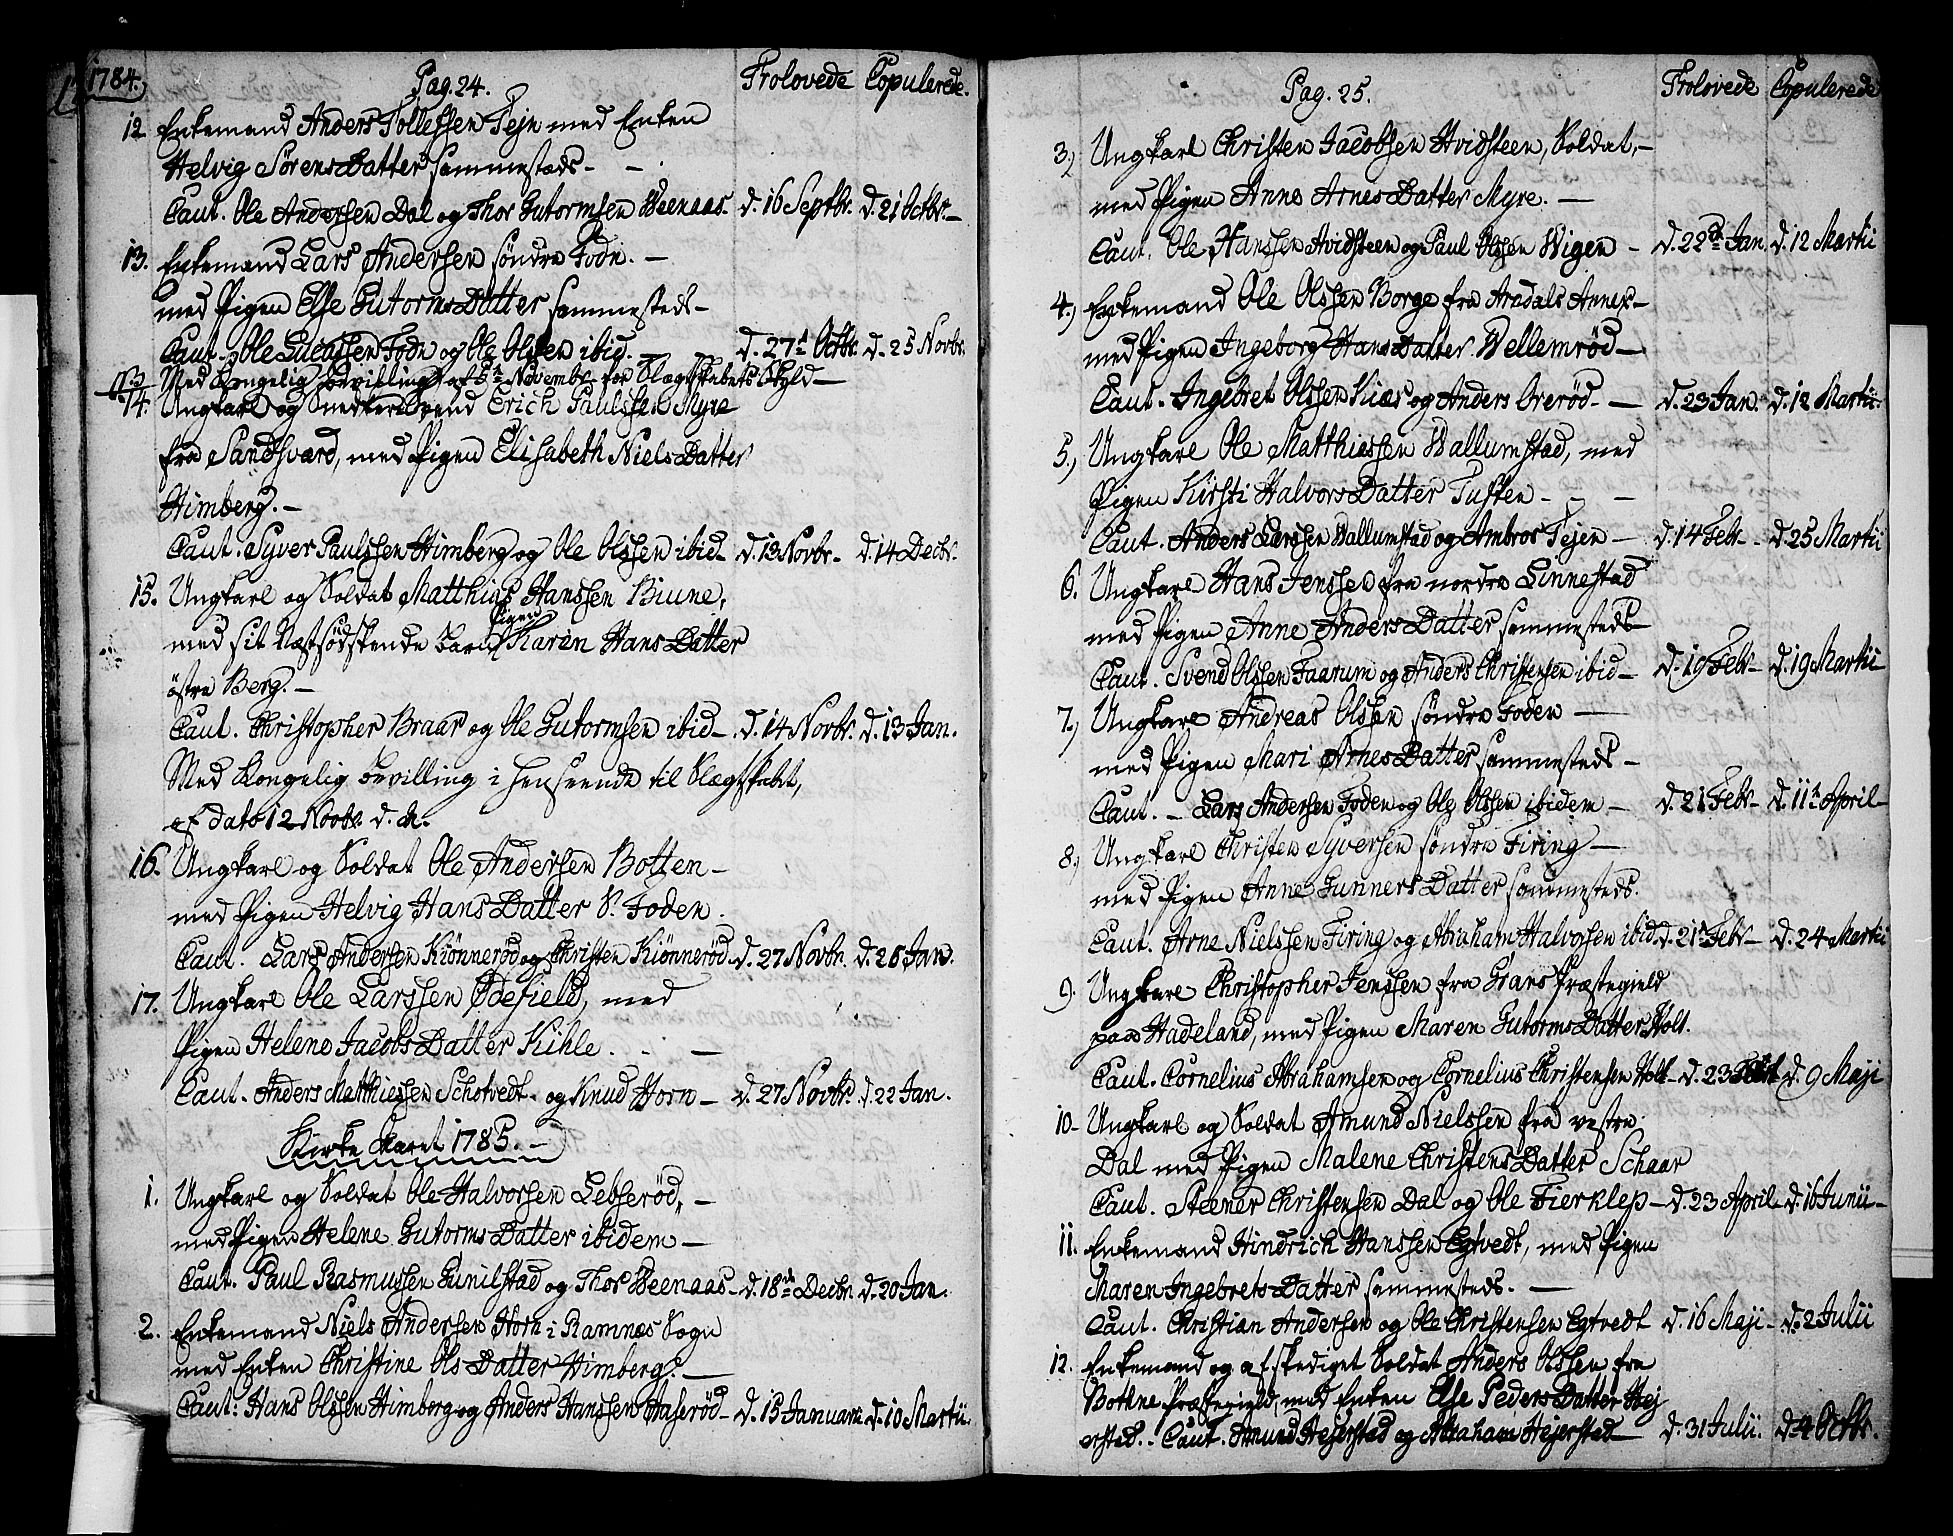 1784.
Pag. 24.
Trolovede Copulerede.
12 Enkemand Anders Tollefsen Tejn med Enken
Helvig Sørens Datter sammesteds -
Caut. Ole Andersen Dal og Thor Gutormsen Weenaas. d. 16 Septbr. d. 21 Octbr. -
13. Enkemand Lars Andersen søndre Fodn. -
med Pigen Else Gutorms Datter sammesteds -
Caut. Ole Lucassen Fodn og Ole Olssen ibid. d. 27 Octbr. d. 25 Novbr.
N3 Med Kongelig Bevilling af 5te Novembr. for Slægtskabets Skyld -
14. Ungkarl og Snedkersvend Erich Paulssen Myre
fra Sandsværd, med Pigen Elisabeth Niels Datter
Himberg. -
Caut. Syver Paulssen Himberg og Ole Olssen ibid - d. 13 Novbr - d. 14 Decbr.
15. Ungkarl og Soldat Matthias Hanssen Biune,
med sit Næstsødskende Barn Pigen Karen Hans Datter
østre Berg. -
Caut. Christopher Braar og Ole Gutormsen ibid - d. 14 Novbr. d. 13 Jan.
Med Kongelig Bevilling i Henseende til Slægtskabet,
af dato 12 Novbr. d. A.
16. Ungkarl og Soldat Ole Andersen Botten -
med Pigen Helvig Hans Datter S. Foden.
Caut. Lars Andersen Kiønnerød og Christen Kiønnerød. d. 27 Novbr. d. 26 Jan.
17. Ungkarl Ole Larssen Ødefield, med
Pigen Helene Jacobs Datter Kihle. -
Caut. Anders Matthiessen Schotvedt og Knud Horn - d. 27 Novbr. d. 22 Jan.
Kirke Aaret 1785. -
1. Ungkarl og Soldat Ole Halvorsen Lebserød, -
med Pigen Helene Gutorms Datter ibidem -
Caut. Paul Rasmussen Gunilstad og Thor Weenaas - d. 18de Decbr. d. 20 Jan.
2. Enkemand Niels Andersen Horn i Ramnæs Sogn
med Enken Christine Ols Datter Himberg. -
Caut: Hans Olssen Himberg og Anders Hanssen Haserød - d. 15 Januarii d. 10 Martii.
Pag. 25.
Trolovede Copulerede
3.) Ungkarl Christen Jacobsen Hvidsteen, Soldat, -
med Pigen Anne Arnes Datter Myre. -
Caut. Ole Hanssen Hvidsteen og Paul Olssen Wigen - d. 22de Jan. d. 12 Martii
4.) Enkemand Ole Olssen Borge fra Aradals Annex -
med Pigen Ingeborg Hans Datter Wellemrød -
Caut. Ingebret Olssen Kiæs og Anders Ørerød - d. 23 Jan. d. 12 Martii.
5.) Ungkarl Ole Matthiessen Wallumstad, med
Pigen Kirsti Halvors Datter Tuften -
Caut. Anders Larssen Wallumstad og Ambros Tejen - d. 14 Febr - d. 25 Martii
6. Ungkarl Hans Jenssen fra nordre Linnestad
med Pigen Anne Anders Datter sammesteds
Caut. Svend Olssen Faarum og Anders Christensen ibid - d. 19 Febr - d. 19 Martii
7.) Ungkarl Andreas Olssen søndre Foden -
med Pigen Mari Arnes Datter sammesteds -
Caut. - Lars Andersen Foden og Ole Olssen ibidem - d. 21 Febr - d. 11te April -
8.) Ungkarl Christen Syversen søndre Firing -
med Pigen Anne Gunners Datter sammesteds.
Caut. Arne Nielssen Firing og Abraham Halvorsen ibid. d. 21 Febr - d. 24 Martii
9. Ungkarl Christopher Jenssen fra Grans Præstegield
paa Hadeland, med Pigen Maren Gutorms Datter Holt.
Caut. Cornelius Abrahamsen og Cornelius Christensen Holt - d. 23 d. 9 Maji
10 - Ungkarl og Soldat Amund Nielssen fra vestre
Dal med Pigen Malene Christens Datter Schaar
Caut. Steener Christensen Dal og Ole Fierklep - d. 23 April - d. 16 Junii -
11. Enkemand Hindrich Hanssen Egtvedt, med Pigen
Maren Ingebrets Datter sammesteds. -
Caut. Christian Andersen og Ole Christensen Egtvedt d. 16 Maji - d. 2 Julii
12. Enkemand og afskediget Soldat Anders Olssen fra
Botne Præstegield, med Enken Else Peders Datter Hej
erstad. - Caut. Amund Hejerstad og Abraham Hejerstad - d. 31 Julii. d. 4 Octbr.